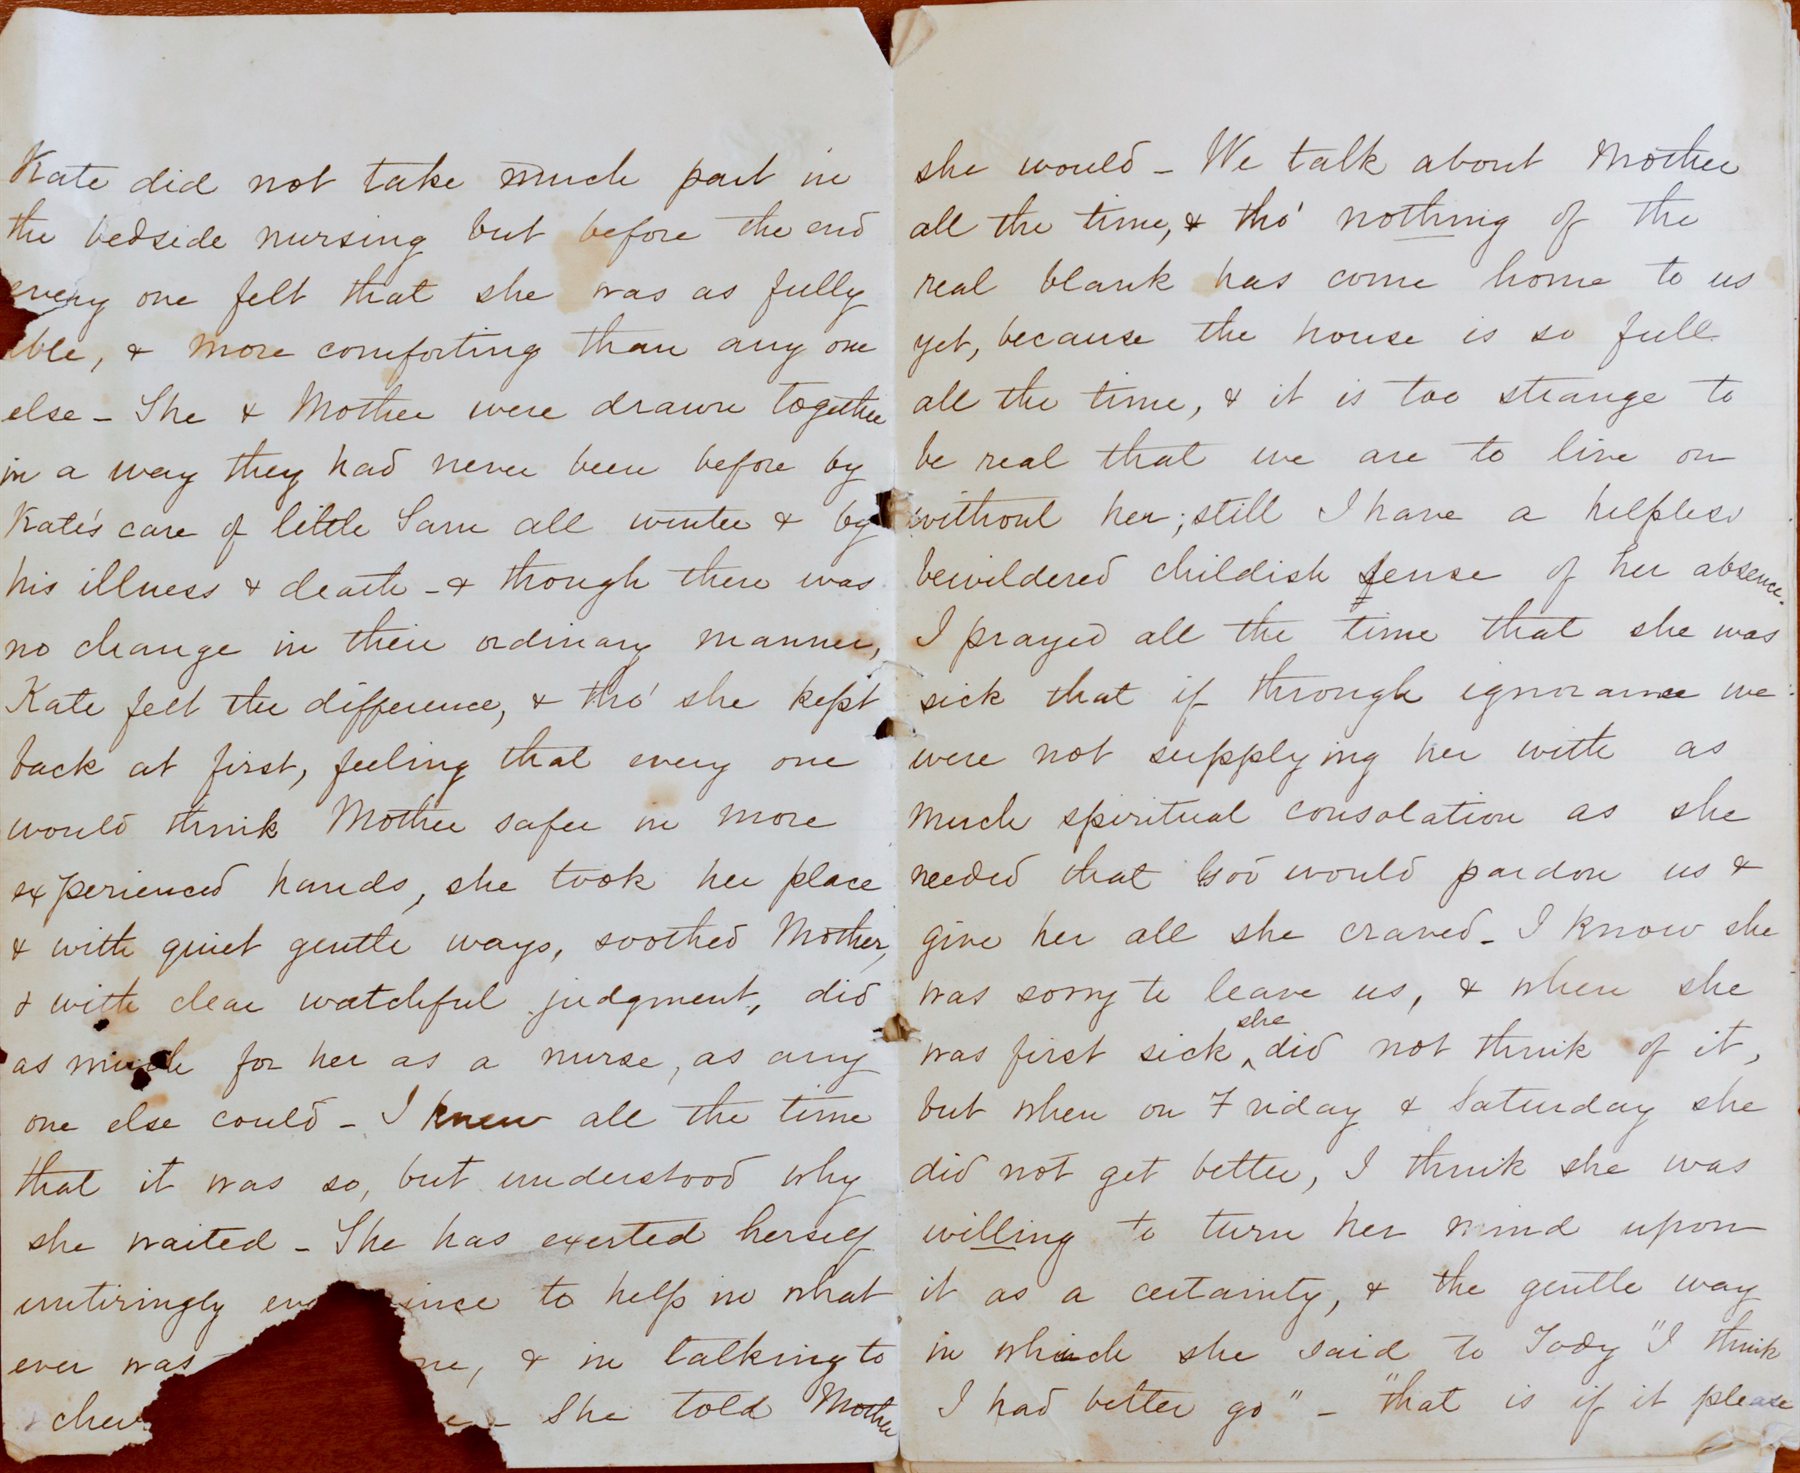 Kate did not take much part in
the bedside nursing but before the end
every one felt that she was as fully
ble, & more comforting than any one
else – She & Mother were drawn together
in a way they had never been before by
Kate's care of little Sam all winter & by
his illness & death – & though there was
no change in their ordinary manner,
Kate felt the difference, & tho' she kept
back at first, feeling that every one
would think Mother safer in more
experienced hands, she took her place
& with quiet gentle ways, soothed Mother,
& with clear watchful judgment, did
as much for her as a nurse, as any
one else could – I knew all the time
that it was so, but understood why
she waited – She has exerted herself
untiringly ev ince to help in what
ever was ne, & in talking to
& cheer e – She told Mother
she would – We talk about Mother
all the time, & tho' nothing of the
real blank has come home to us
yet, because the house is so full
all the time, & it is too strange to
be real that we are to live on
without her; still I have a helpless
bewildered childish sense of her absence.
I prayed all the time that she was
sick that if through ignorance we
were not supplying her with as
much spiritual consolation as she
needed that God would pardon us &
give her all she craved – I know she
was sorry to leave us, & when she
was first sick she did not think of it,
but when on Friday & Saturday she
did not get better, I think she was
willing to turn her mind upon
it as a certainty, & the gentle way
in which she said to Tody "I think
I had better go" – "that is if it please